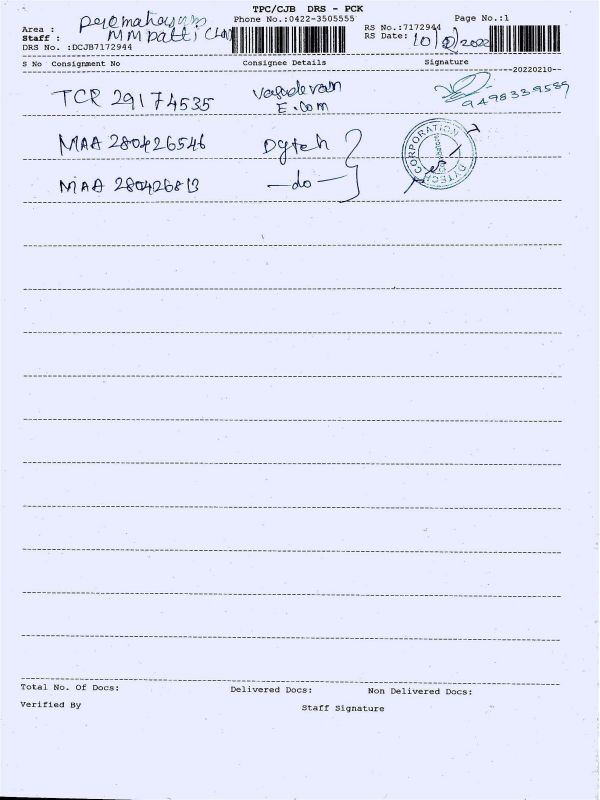 TPC/CJB DRS - PCK
Phone No.:0422-3505555 Page No.:1
Area :
Staff : MMPatti
RS No.:7172944
RS Date: 10/2/2022
DRS No. :DCJB7172944
S No Consignment No Consignee Details Signature
--20220210--
TCR 29174535 Vasudevan
E.Com
9498339589
MAA 280426546 Dytech
MAA 280426813 —do—
DYTECH CORPORATION
Total No. Of Docs: Delivered Docs: Non Delivered Docs:
Verified By Staff Signature